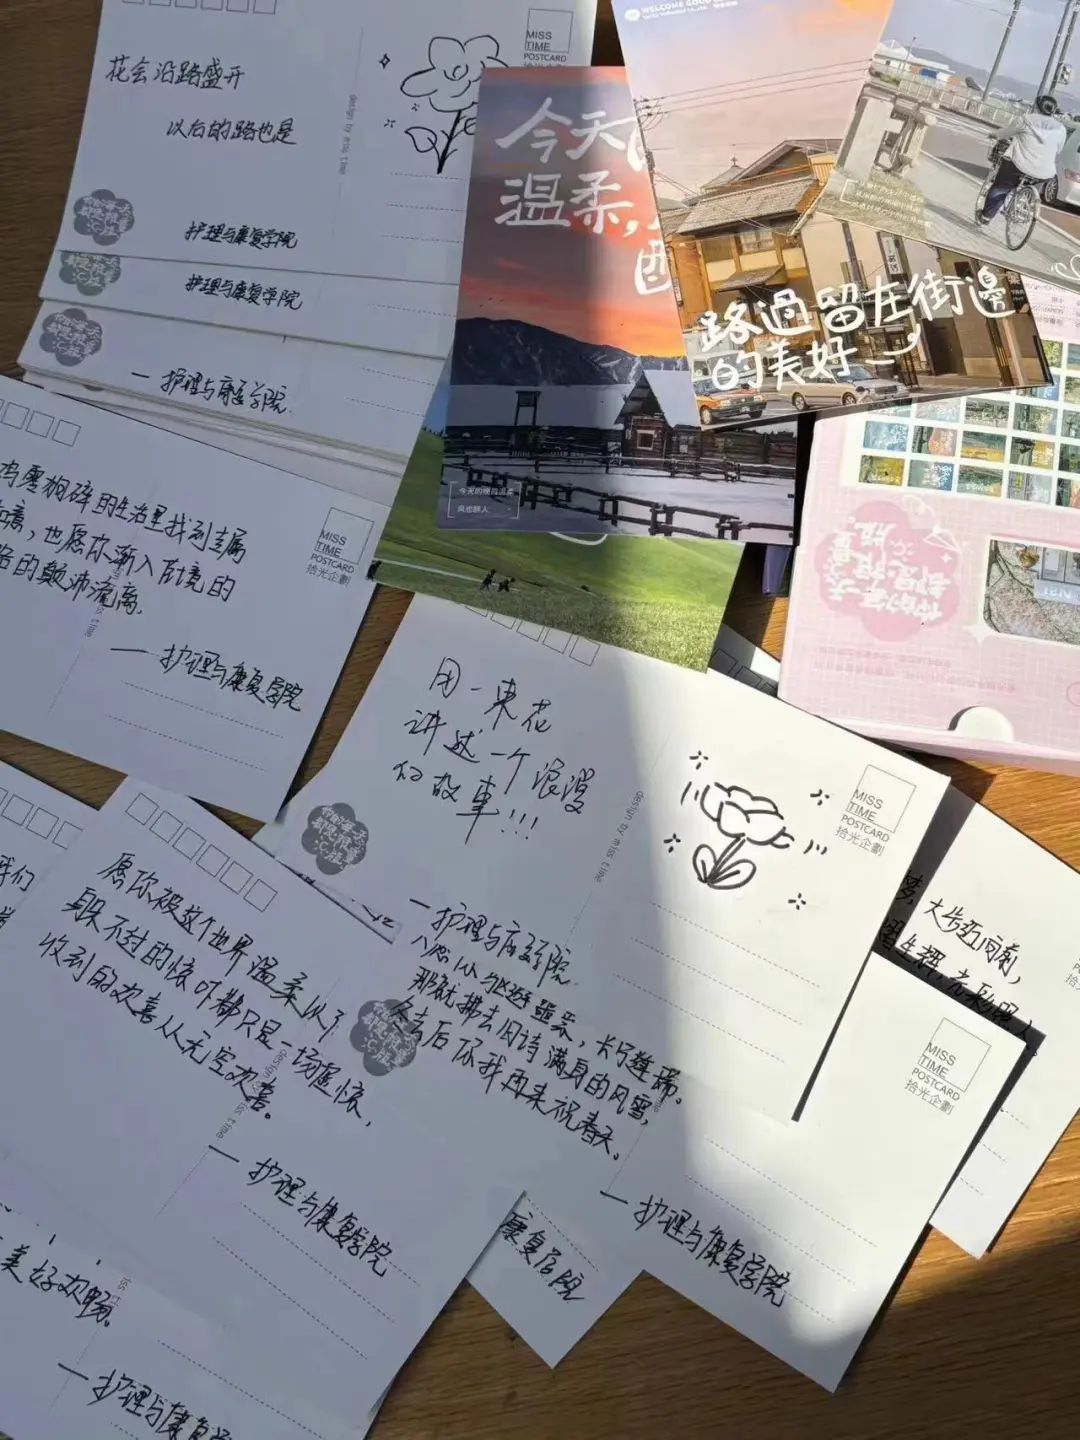 花会沿路盛开
以后的路也是
护理与康复学院
MISS
TIME
POSTCARD
design by miss time
护理与康复学院
一护理与康复学院
WELCOME GOOD
今天
温柔,
今天的晚霞温柔
风也醉人
路過留在街邊
的美好
你的每一天
都是限量
版
琐碎的生活里找到专属
，也愿你渐入佳境的
的颠沛流离.
一护理与康复学院
MISS
TIME
POSTCARD
拾光企劃
用一束花
讲述一个浪漫
的故事!!!
一护理与康复学院
design by miss time
MISS
TIME
POSTCARD
拾光企劃
愿你被这个世界温柔以
躲不过的惊吓都只是一场虚惊,
收到的欢喜从无空欢喜。
一护理与康复学院
那就拂去旧诗满身的风雪,
冬去后你我再来祝春天。
一护理与康复学院
MISS
TIME
POSTCARD
拾光企劃
大步迈向前,
我们
美好欢畅。
一护理与康复学
康复学院